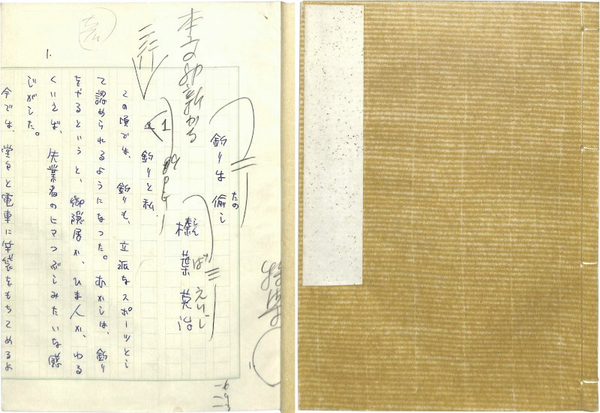 釣りは愉し
たの
釣りと私
榛葉英治
えいじ
この頃では、釣りも、立派なスポーツとし
て認められるようになった。むかしは、釣り
をやるというと、御隠居か、ひま人か、わる
くいえば、失業者のヒマつぶしみたいな感
じがした。
今では、堂々と電車に竿袋をもちこめるよ
1.